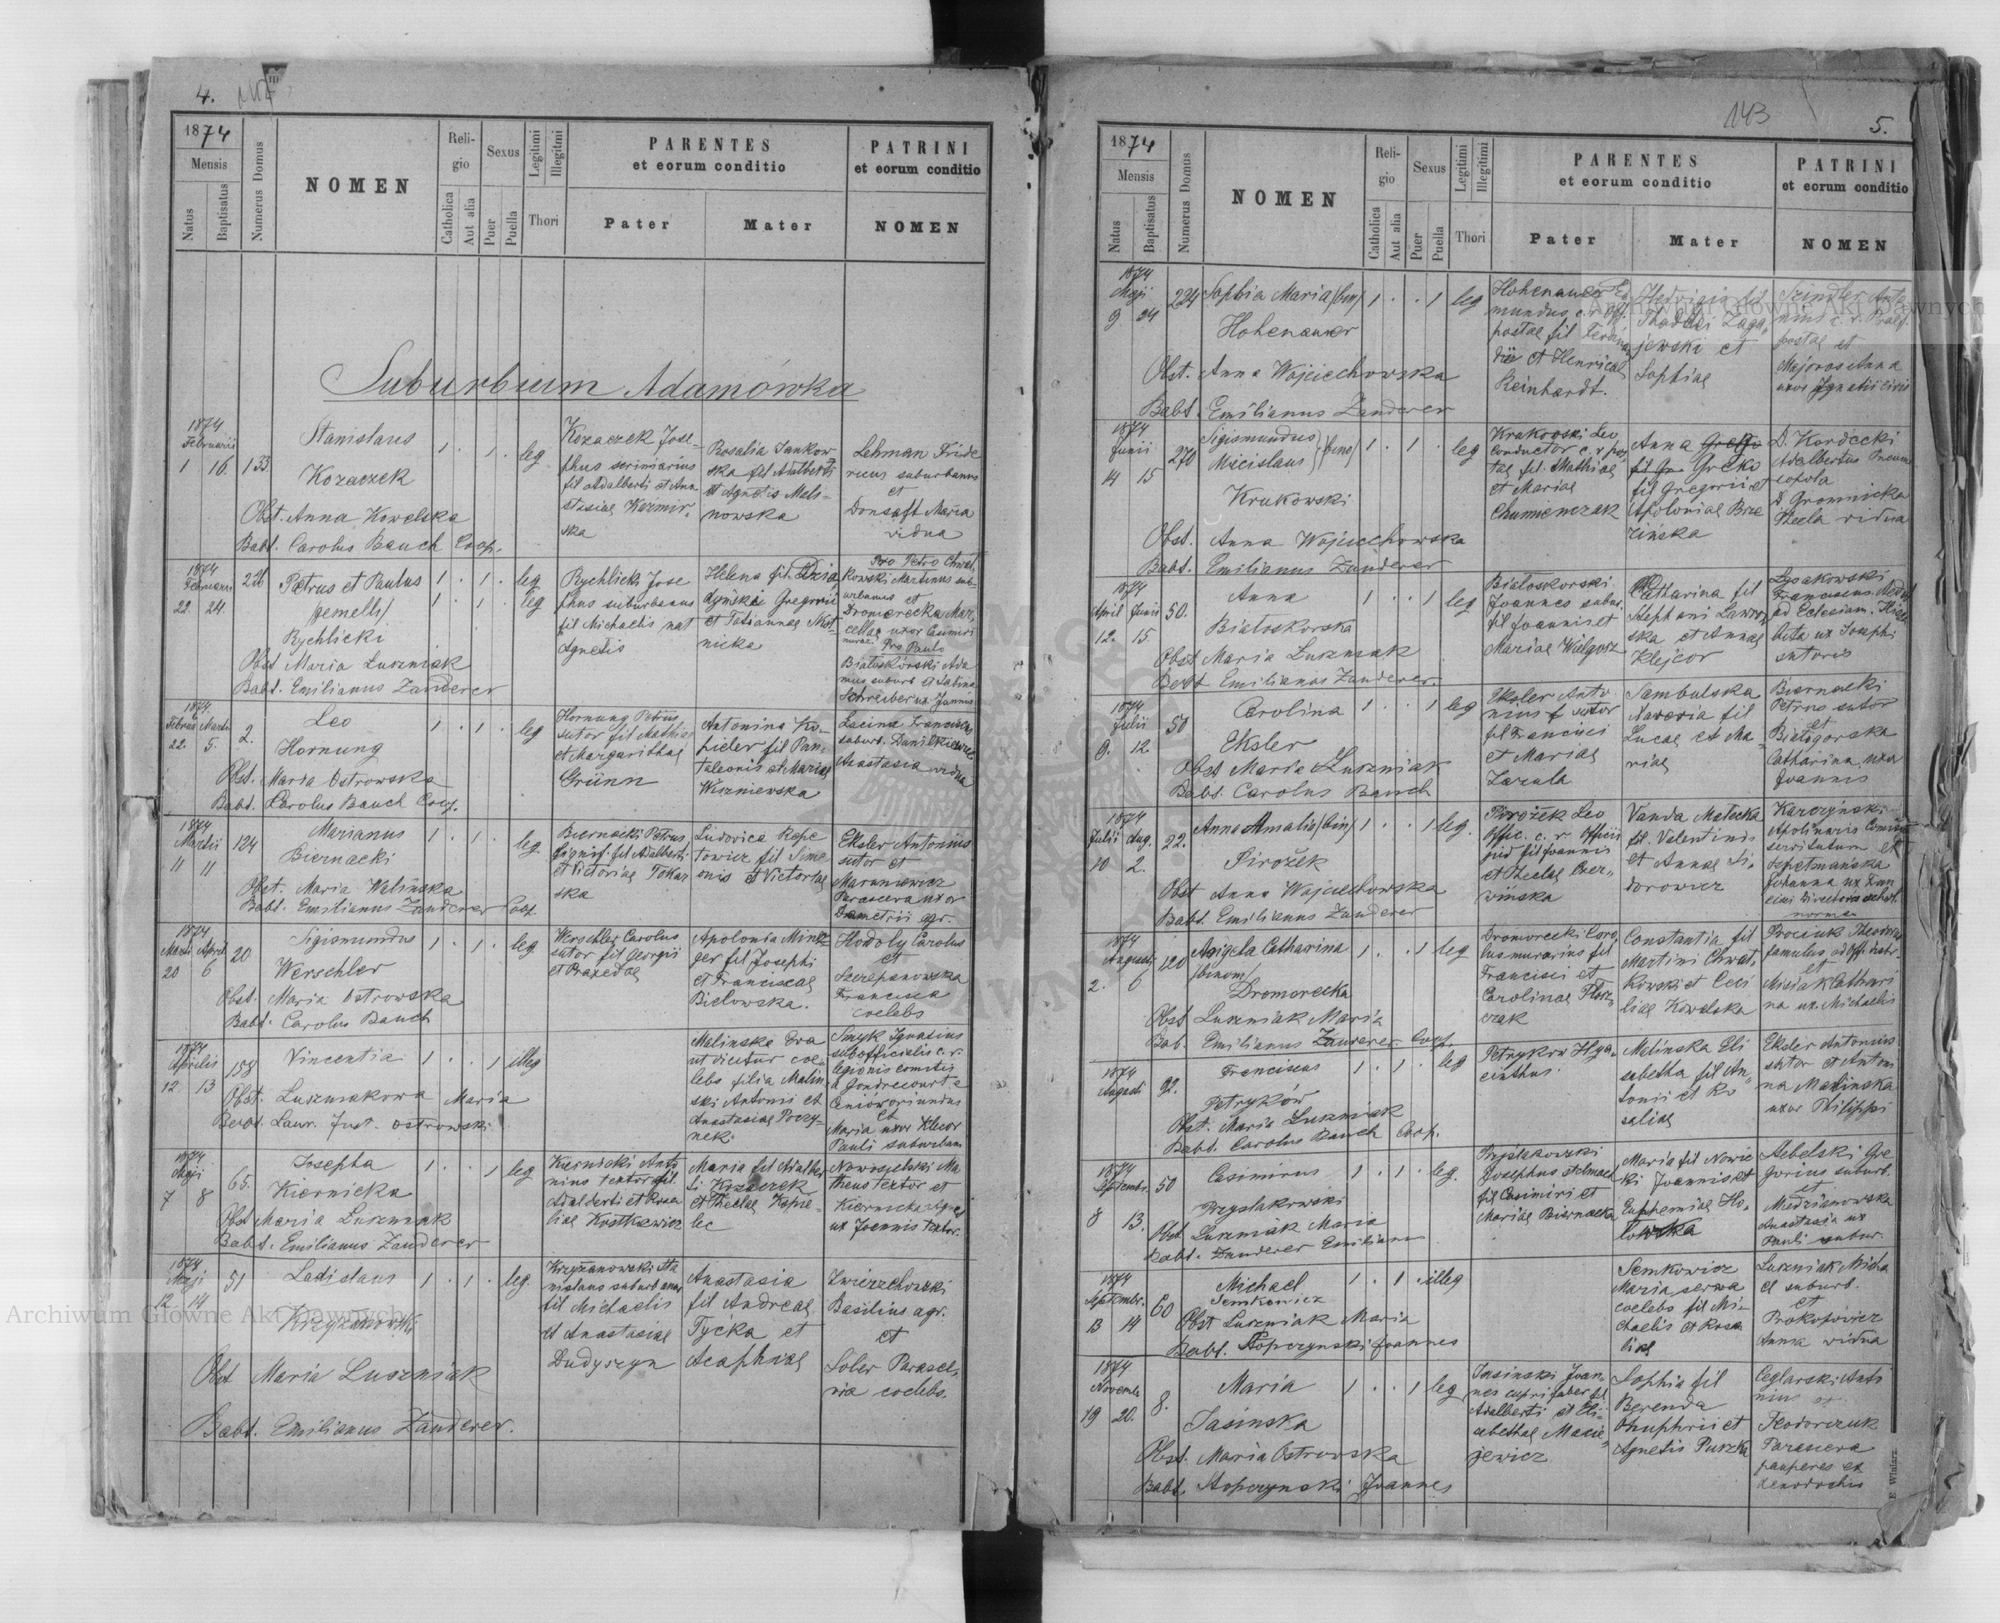 4.
1874
Mensis
Natus
Baptisatus
Numerus Domus
NOMEN
Religio
Catholica
Aut alia
Sexus
Puer
Puella
Legitimi
Illegitmi
Thori
PARENTES
et eorum conditio
Pater
Mater
PATRINI
et eorum conditio
NOMEN
Suburbium Adamówka
1874
Februarii
1 16. 133.
Stanislaus
Kozaczek
1 . 1 . leg
Obst. Anna Kowelska
Babt. Carolus Bauch Coop.
Kozaczek Jose-
phus scriniarius
fil Adalberti et Ana-
stasiae Kazmir-
ska
Rosalia Jankow-
ska fil Adalberti
et Agnetis Meli-
nowska
Lehman Fride
ricus suburbanus
et
Donsaft Maria
vidua
1874
Februarii
22. 24.
Petrus et Paulus
/gemelli/
Rychlicki
1 . 1 . leg
1 . 1 . leg
Obst Maria Luszniak
Babt. Emilianus Zanderer
Rychlicki Jose
phus suburbanus
fil Michaelis nat
Agnetis
Helena fil
Gregorii
et Tatiannae
nicka
Pro Petro Chwat
kowski Martinus sub-
urbanus et
Dromerecka Mar,
cella uxor Casimiri
Pro Paulo
Białoskórski Ada
mus suburb et Sabina
Schreiber ux Joannis
1874
Februar Martii
22. 5. 2.
Leo
Hornung
1 . 1 . leg
Obst. Maria Ostrowska
Babt. Carolus Bauch Coop.
Hornung Petrus
sutor fil Mathiae
et Margarithae
Grünn
Antonina Ko-
pieler fil Pan-
taleonis et Mariae
Wiszniewska
Lacina Franciscus
suburb. Danilkiewicz
Anastasia vidua
1874
Martii
11 11 124
Marianus
Biernacki
1 . 1 . leg.
Obst. Maria Walińska
Babt. Emilianus Zanderer Coop
Biernacki Petrus
fil Adalberti
et Victoriae Tokar
ska
Ludovica Kope
towicz fil Sime
onis et Victoriae
Eksler Antonius
sutor et
Maraniewicz
Parascera uxor
Demetrii agr.
1874
Martii Aprili
20 6 20
Sigismundus
Werschler
1 . 1 . leg
Obst. Maria Ostrowska
Babt. Carolus Bauch
Werschler Carolus
sutor fil Georgii
et Praxedae
Apolonia Mintz
ger fil Josephi
et Franciscae
Bielowska.
Hodoly Carolus
et
Szczepanowska
Francisca
coelebs
1874
Aprilis
12 13 158
Vincentia
1 . . 1 illeg
Obst. Luszniakowa Maria
Babt. Laur. Just. Ostrowski
Malinska Eva
ut dicitur coe-
lebs filia Malin
ski Antonii et
Anastasiae Poczy-
nek
Smyk Ignatius
subofficialis c. r.
legionis comitis
a Gondrecourt e
Cenióv oriundus
et
Maria uxor Klecor
Pauli suburban
1874
Maji
7 8 65.
Josepha
Kiernicka
1 . . 1 leg
Obst Maria Luszniak
Babt. Emilianus Zanderer
Kiernicki Anto
nius textor fil.
Adalberti et Rosa
liae Kostkiewicz
Maria fil Adalber
ti Kozaczek
et Theclae Kopie
lec
Nowosielski Ma
theus textor et
Kiernicka Agnes
ux Joannis textor.
1874
Maji
12 14 51
Ladislaus
Krzyżanowski
1 . 1 . leg.
Obst Maria Luszniak
Babt. Emilianus Zanderer.
Krzyżanowski Sta
nislaus suburbanus
fil Michaelis
et Anastasiae
Dudyszyn
Anastasia
fil Andreae
Tycka et
Acaphiae
Zwierzchowski
Basilius agr.
et
Soler Parasce,
via coelebs.
143
5.
1874
Mensis
Natus
Baptisatus
Numerus Domus
NOMEN
Religio
Catholica
Aut alia
Sexus
Puer
Puella
Legitimi
Illegitimi
Thori
PARENTES
et eorum conditio
Pater
Mater
PATRINI
et eorum conditio
NOMEN
1874
Maji
9 24 224
Sophia Maria /bin/
Hohenauer
1 . . 1 leg
Obst. Anna Wojciechowska
Babt. Emilianus Zanderer
Hohenauer Ed
mundus c. r. off.
postae fil Ferdinan
di et Henricae
Reinhardt.
Hedvigis fil
Thadei Zaga,
jewski et
Sophiae
Szindler Anto
nius c. r. Praef.
postae et
Majoros Anna
uxor Ignatii civis
1874
Junii
14 15 270
Sigismundus
Miecislaus /bino/
Krukowski
1 . 1 . leg
Obst. Anna Wojciechowska
Babt. Emilianus Zanderer
Krukowski Leo
conductor c. r. pos
tae fil. Mathiae
et Mariae
Chumienczak
Anna
Grecko
fil Gregorii et
Apoloniae Brze
zińska
D. Kordecki
Adalbertus
D. Gromnicka
Thecla vidua
1874
April Junii
12. 15 50.
Anna
Białoskorska
1 . . 1 leg
Obst Maria Luszniak
Babt Emilianus Zanderer.
Białoskorski
Joannes subur.
fil Joannis et
Mariae
Catharina fil
Stephani Lawrow
ska et Annae
Klejcor
Lysakowski
Franciscus
ad Eclesiam.
beta ux Josephi
sutoris
1874
Julii
9. 12. 50
Carolina
Eksler
1 . . 1 leg
Obst Maria Luszniak
Babt. Carolus Bauch
Eksler Anto
nius sutor
fil Francisci
et Mariae
Zazula
Sambulska
Xaveria fil
Lucae et Ma
riae
Biernacki
Petrus sutor
et
Białogorska
Catharina uxor
Joannis
1874
Julii Aug.
10 2. 22.
Anna Amalia /bin/
Pirożek
1 . . 1 leg.
Obst Anna Wojciechowska
Babt. Emilianus Zanderer
Pirożek Leo
Offic. c. r officii
jud fil Joannis
et Theclae Czer-
wińska
Vanda Małecka
fil. Valentinis
et Annae Si-
dorowicz
Karczyński
Apolinaris
servitutum et
Szpetmańska
Johanna ux Fran
cisci Directoris schol.
norma
1874
Augusti
2. 6 120
Angela Catharina
/binom/
Dromerecka
1 . . 1 leg
Obst Luszniak Maria
Bab. Emilianus Zanderer Coop.
Dromerecki Caro
lus murarius fil
Francisci et
Carolinae Tkacz
czak
Constantia fil
Martini Chwat,
kowski et Ceci
liae Kowelska
Prociuk Theodorus
famulus
et
Misiak Cathari
na ux. Michaelis
1874
Augusti
92.
Franciscus
Petryków
1 . 1 . leg
Obst. Maria Luszniak
Babt. Carolus Bauch Coop.
Petryków Hya-
cinthus.
Malinska Eli
sabetha fil An
tonii et Ro
saliae
Eksler Antonius
sutor et Anton
na Malinska
uxor Philippi
1874
Septembr.
8 13. 50
Casimirus
Przystakowski
1 . 1 . leg.
Obst Luszniak Maria
Babt. Zanderer Emilian
Przystakowski
Josephus
fil Casimiri et
Mariae Biernacka
Maria fil Nowic
ki Joannis et
Euphemiae Ho-
lowska
Aebelski Gre
gorius suburb.
et
Miedzianowska
Anastasia ux
Pauli subur.
1874
Septembr.
13 14 60
Michael
Semkowicz
1 . 1 . illeg
Obst Luszniak Maria
Babt. Stopczynski Joannes
Semkowicz
Maria serva
coelebs fil Mi-
chaelis et Rosa
liae
Luszniak Micha
el suburb.
et
Prokopowicz
Anna vidua
1874
Novemb.
19 20. 8.
Maria
Jasinska
1 . . 1 leg
Obst. Maria Ostrowska
Babt. Stopczynski Joannes
Jasinski Joan-
nes cuprifaber fil
Adalberti et Eli-
sabethae Macie-
jewicz
Sophia fil
Berenda
Onuphrii et
Agnetis Puszka
Ceglarski Anto
nius et
Fedorczuk
Parascera
pauperes ex
xenodochio
E Winiarz
Archiwum Główne Akt Dawnych
Archiwum Główne Akt Dawnych